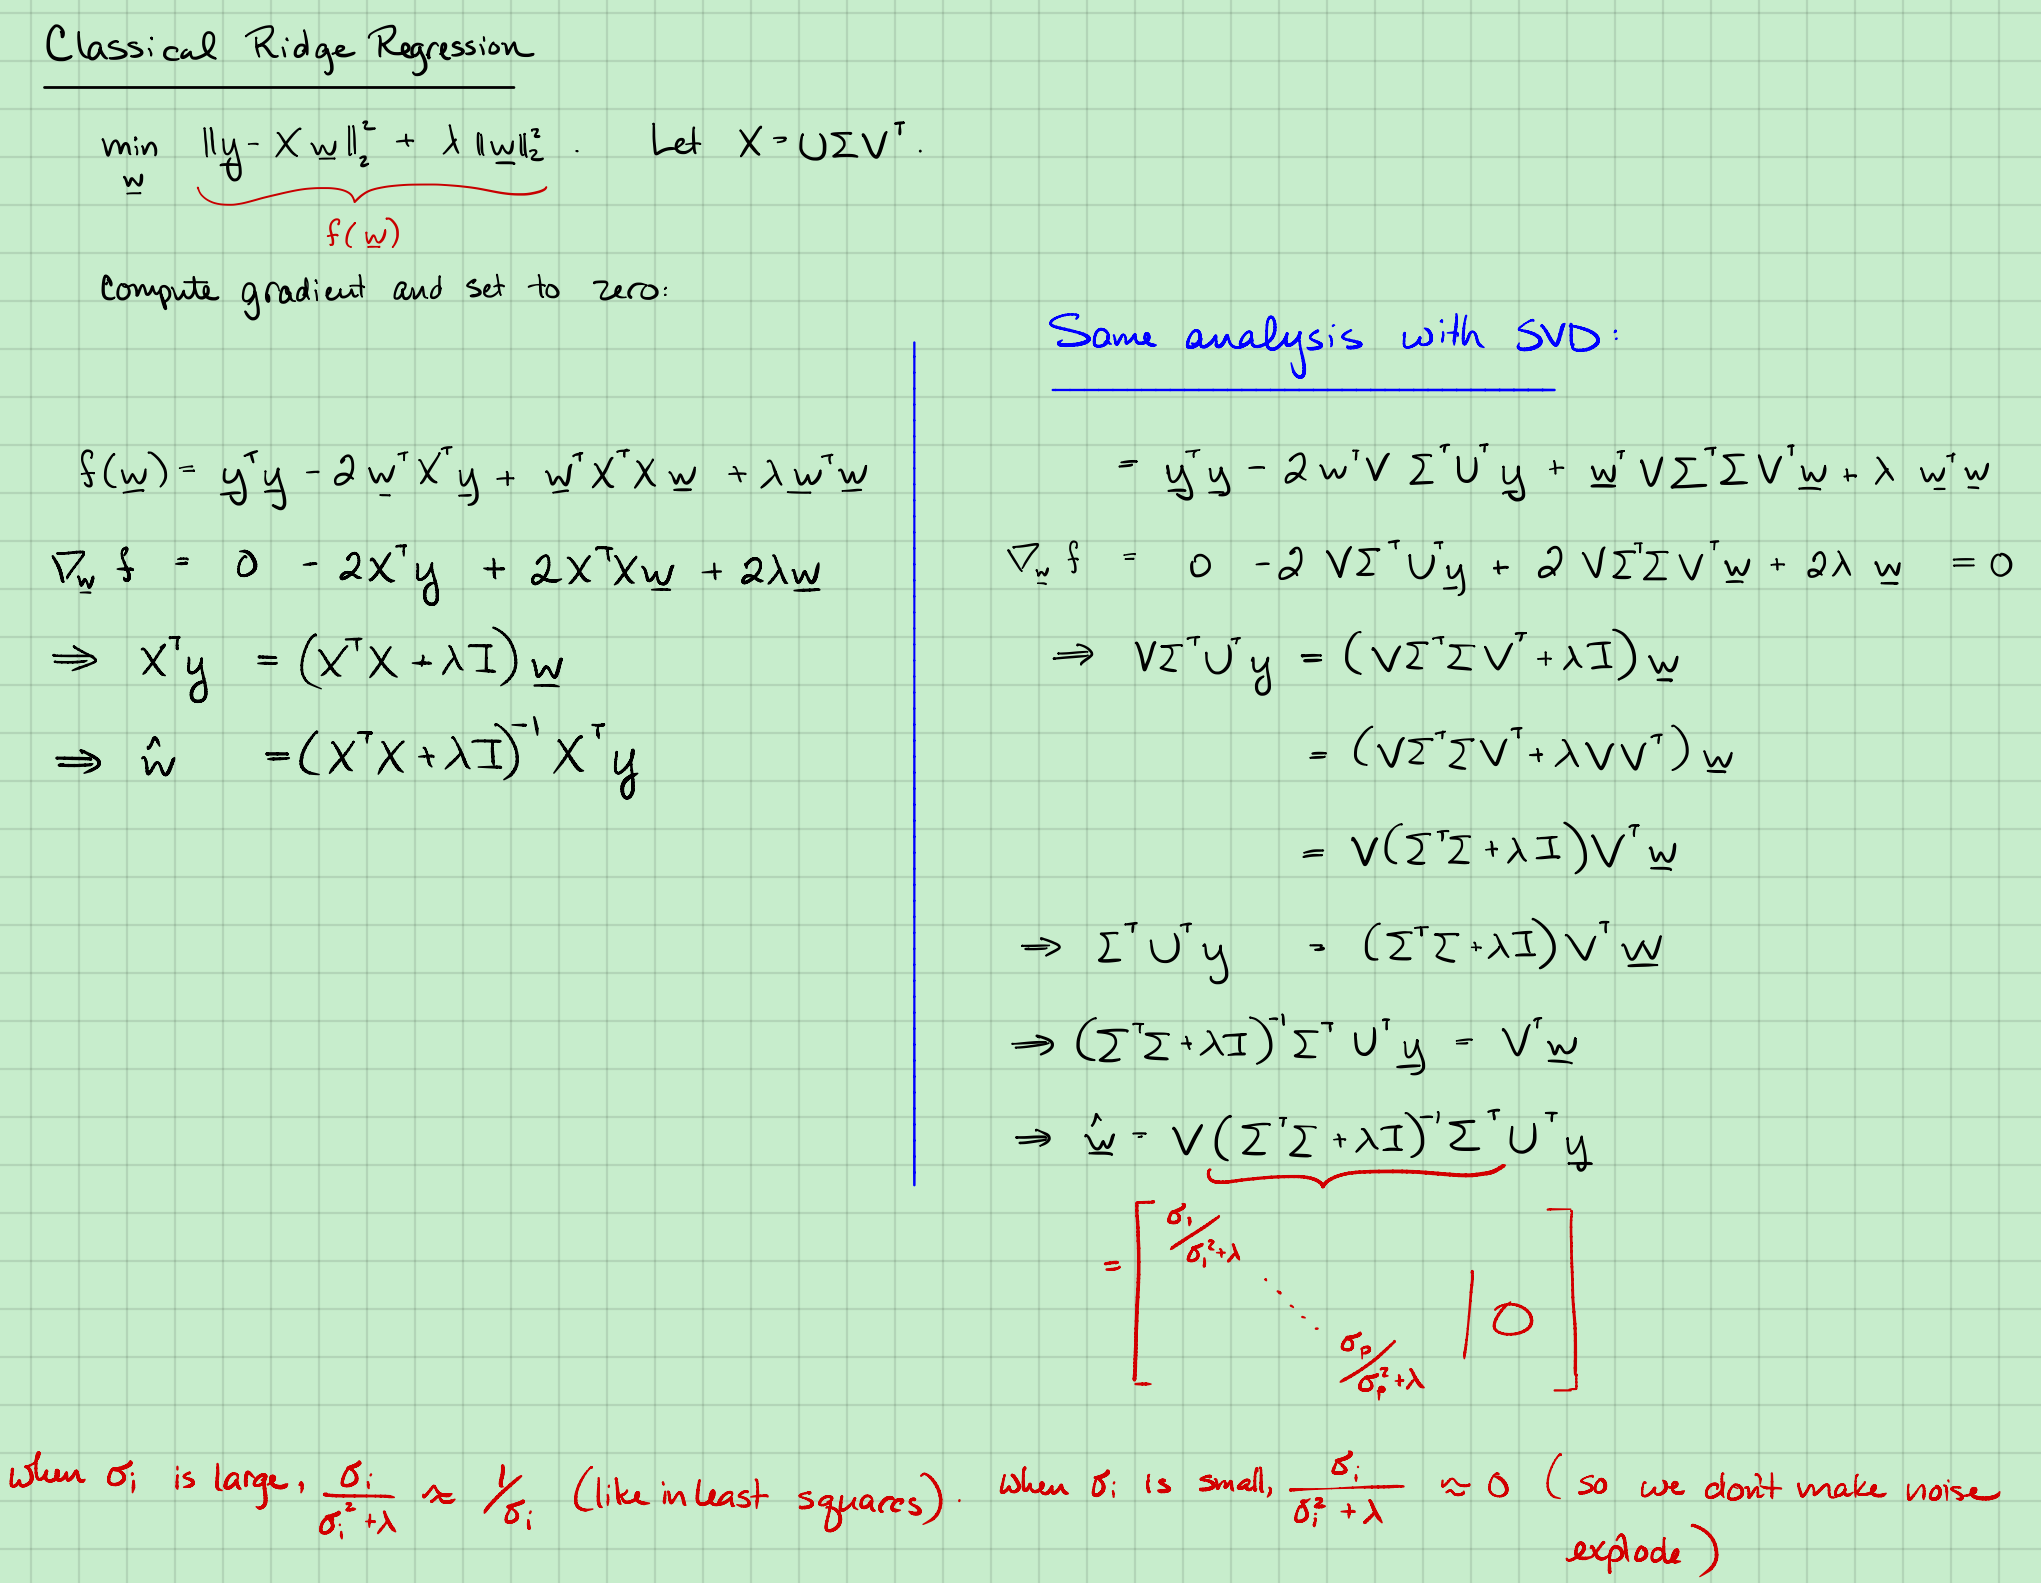 Classical Ridge Regression
min_w ‖y - Xw‖₂² + λ‖w‖₂². Let X = UΣVᵀ.
f(w)
Compute gradient and set to zero:
f(w) = yᵀy - 2wᵀXᵀy + wᵀXᵀXw + λwᵀw
∇_w f = 0 - 2Xᵀy + 2XᵀXw + 2λw
⇒ Xᵀy = (XᵀX + λI)w
⇒ ŵ = (XᵀX + λI)⁻¹Xᵀy
Same analysis with SVD:
= yᵀy - 2wᵀVΣᵀUᵀy + wᵀVΣᵀΣVᵀw + λwᵀw
∇_w f = 0 - 2VΣᵀUᵀy + 2VΣᵀΣVᵀw + 2λw = 0
⇒ VΣᵀUᵀy = (VΣᵀΣVᵀ + λI)w
= (VΣᵀΣVᵀ + λVVᵀ)w
= V(ΣᵀΣ + λI)Vᵀw
⇒ ΣᵀUᵀy = (ΣᵀΣ + λI)Vᵀw
⇒ (ΣᵀΣ + λI)⁻¹ΣᵀUᵀy = Vᵀw
⇒ ŵ = V(ΣᵀΣ + λI)⁻¹ΣᵀUᵀy
= [ σ₁/σ₁²+λ ⋱ σₚ/σₚ²+λ | 0 ]
when σᵢ is large, σᵢ/σᵢ²+λ ≈ 1/σᵢ (like in least squares). when σᵢ is small, σᵢ/σᵢ²+λ ≈ 0 (so we don't make noise
explode)